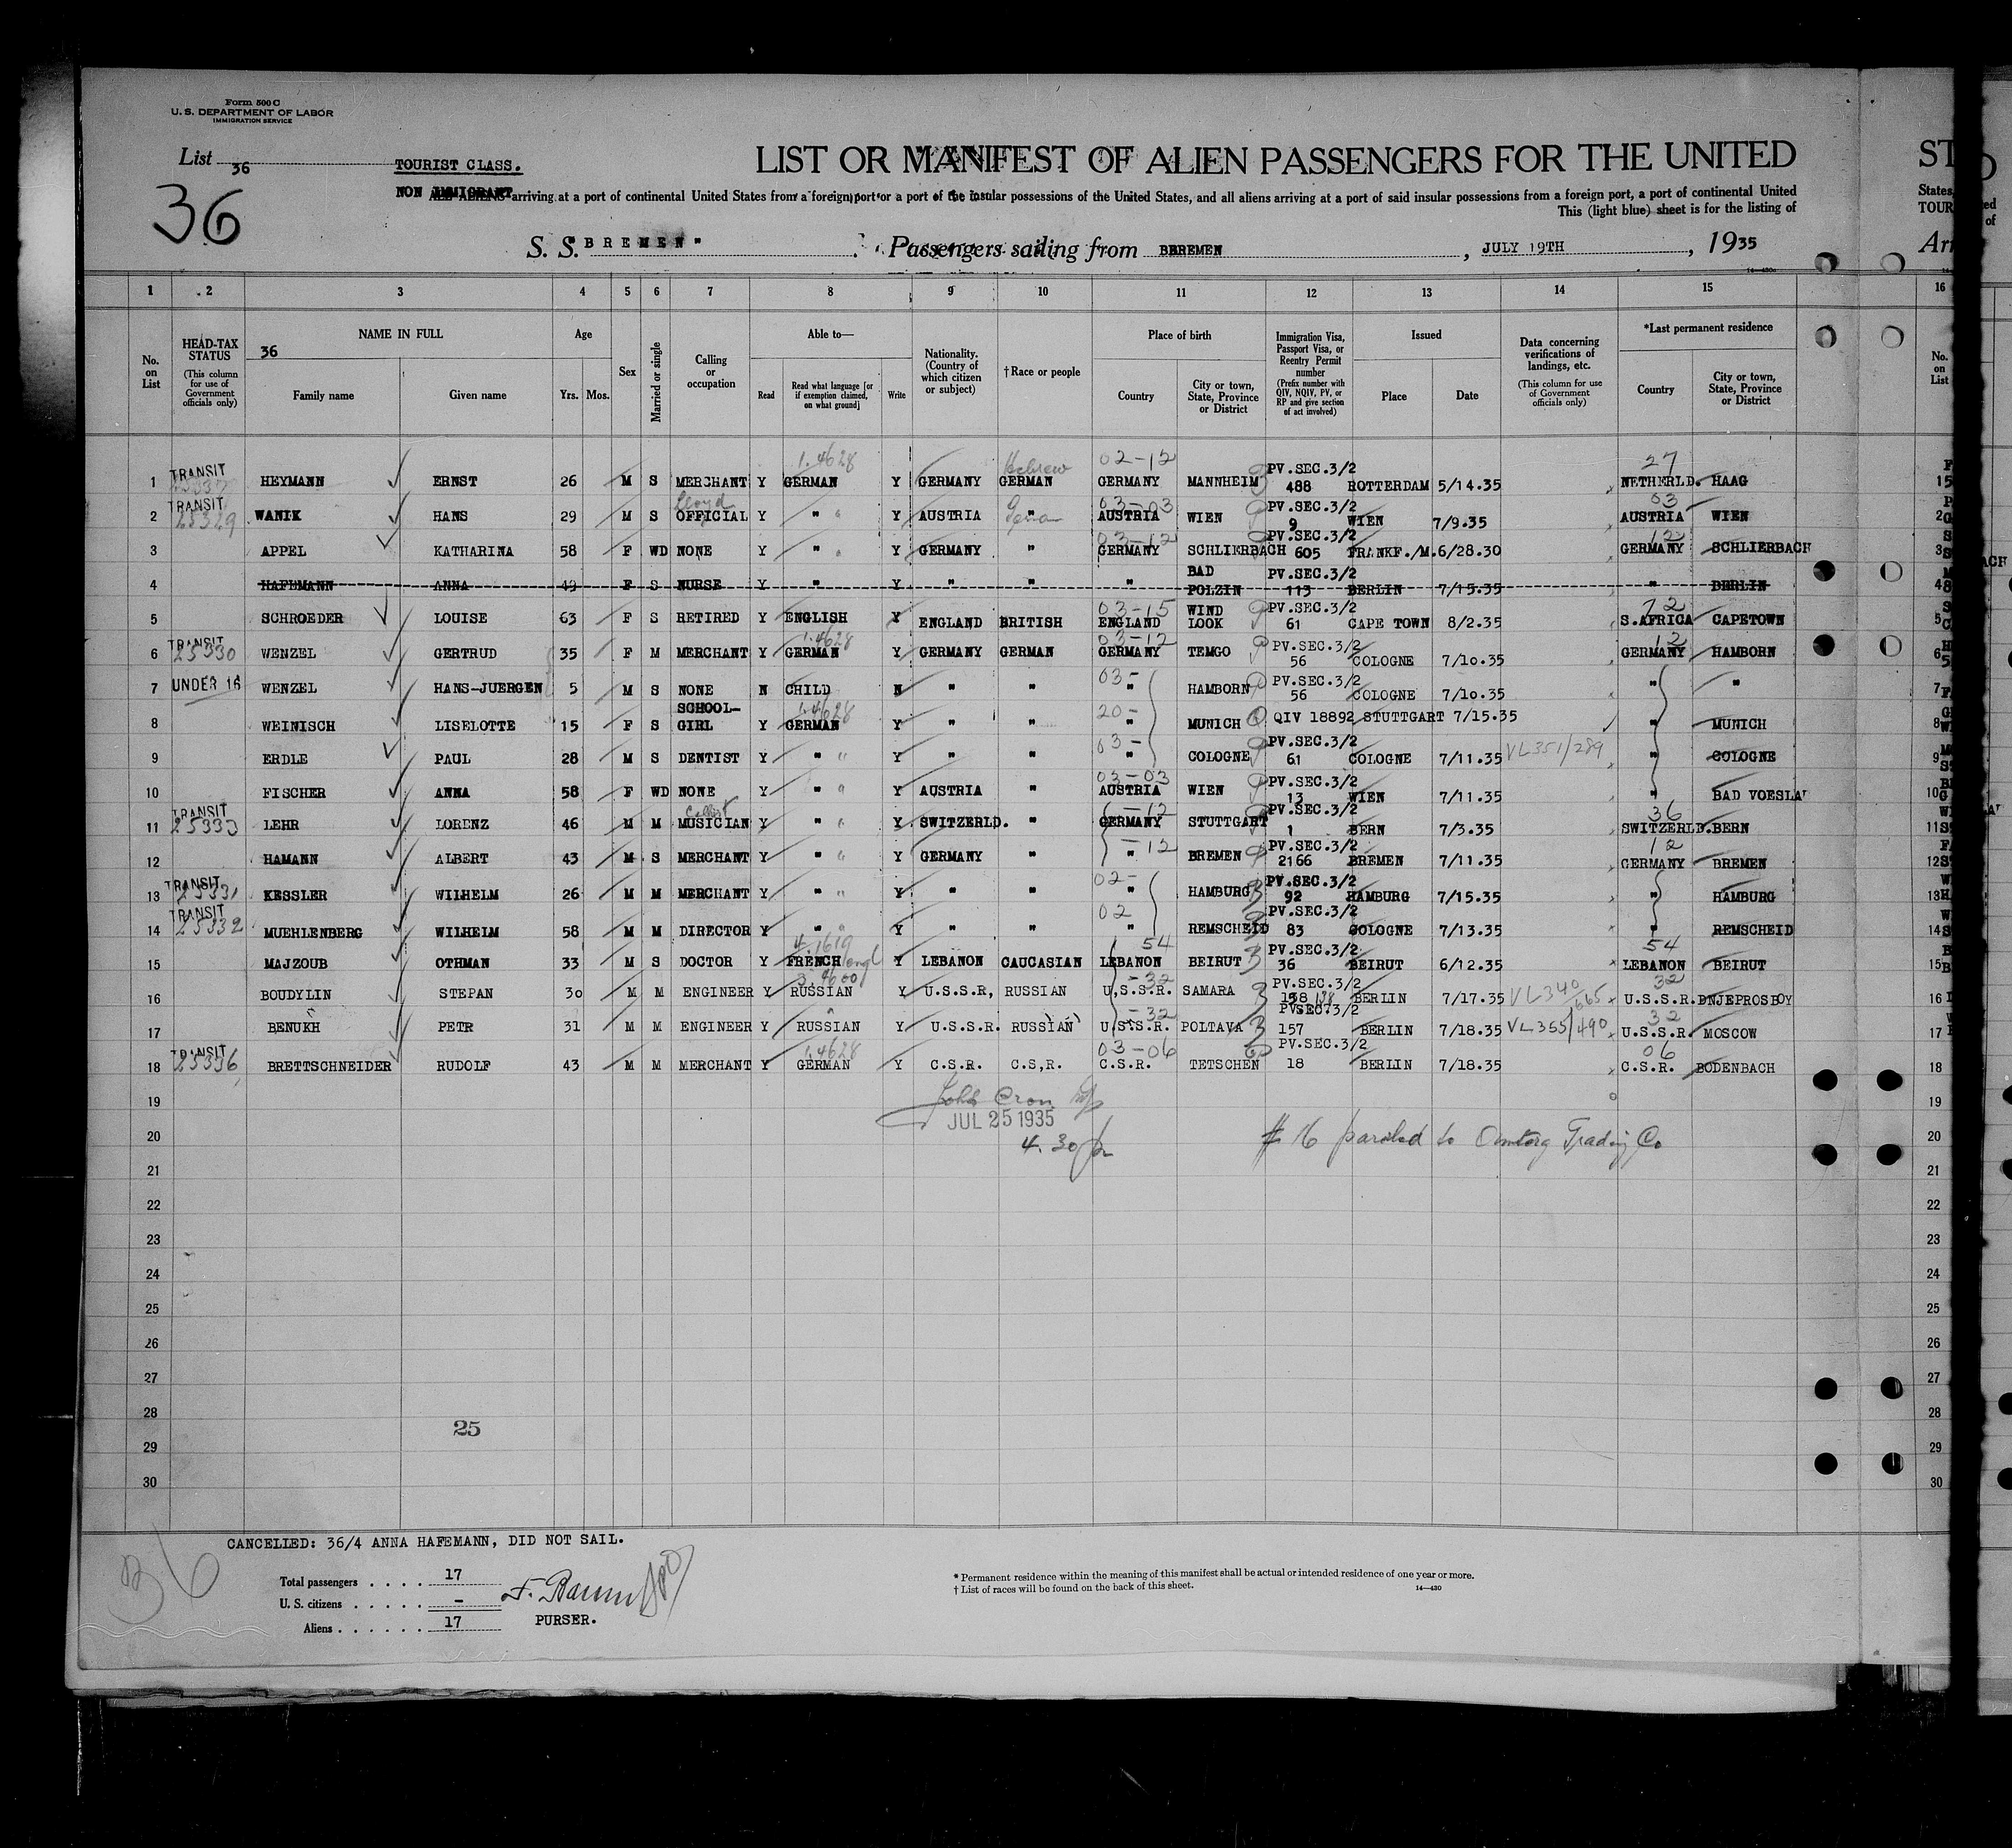 Form 500 C
U. S. DEPARTMENT OF LABOR
IMMIGRATION SERVICE
List 36
TOURIST CLASS.
36
LIST OR MANIFEST OF ALIEN PASSENGERS FOR THE UNITED
NON IMMIGRANT arriving at a port of continental United States from a foreign port or a port of the insular possessions of the United States, and all aliens arriving at a port of said insular possessions from a foreign port, a port of continental United
This (light blue) sheet is for the listing of
S. S. "BREMEN" Passengers sailing from BREMEN, JULY 19TH, 1935
1 2 3 4 5 6 7 8 9 10 11 12 13 14 15 16
No. on List
HEAD-TAX STATUS (This column for use of Government officials only)
NAME IN FULL
36
Family name
Given name
Age
Yrs. Mos.
Sex
Married or single
Calling or occupation
Able to—
Read
Read what language [or if exemption claimed, on what ground]
Write
Nationality. (Country of which citizen or subject)
†Race or people
Place of birth
Country
City or town, State, Province or District
Immigration Visa, Passport Visa, or Reentry Permit number (Prefix number with QIV, NQIV, PV, or RP and give section of act involved)
Issued
Place
Date
Data concerning verifications of landings, etc. (This column for use of Government officials only)
*Last permanent residence
Country
City or town, State, Province or District
No. on List
1 TRANSIT HEYMANN ERNST 26 M S MERCHANT Y GERMAN 1.4628 Y GERMANY GERMAN Hebrew 02-12 GERMANY MANNHEIM PV.SEC.3/2 488 ROTTERDAM 5/14.35 27 NETHERLD. HAAG
2 TRANSIT 25329 WANIK HANS 29 M S Lloyd OFFICIAL Y " Y AUSTRIA " 03-03 AUSTRIA WIEN PV.SEC.3/2 9 WIEN 7/9.35 03 AUSTRIA WIEN
3 APPEL KATHARINA 58 F WD NONE Y " Y GERMANY " 03-12 GERMANY SCHLIERBACH PV.SEC.3/2 605 FRANKF./M. 6/28.30 12 GERMANY SCHLIERBACH
4 HAFEMANN ANNA 49 F S NURSE Y " Y " " " BAD POLZIN PV.SEC.3/2 113 BERLIN 7/15.35 " BERLIN
5 SCHROEDER LOUISE 63 F S RETIRED Y ENGLISH Y ENGLAND BRITISH 03-15 ENGLAND WIND LOOK PV.SEC.3/2 61 CAPE TOWN 8/2.35 72 S.AFRICA CAPETOWN
6 TRANSIT 25330 WENZEL GERTRUD 35 F M MERCHANT Y 1.4628 GERMAN Y GERMANY GERMAN 03-12 GERMANY TEMGO PV.SEC.3/2 56 COLOGNE 7/10.35 12 GERMANY HAMBORN
7 UNDER 16 WENZEL HANS-JUERGEN 5 M S NONE N CHILD N " " 03- " HAMBORN PV.SEC.3/2 56 COLOGNE 7/10.35 " "
8 WEINISCH LISELOTTE 15 F S SCHOOL-GIRL Y 1.4628 GERMAN Y " " 20- " MUNICH QIV 18892 STUTTGART 7/15.35 " MUNICH
9 ERDLE PAUL 28 M S DENTIST Y " Y " " 03- " COLOGNE PV.SEC.3/2 61 COLOGNE 7/11.35 VL351/289 " COLOGNE
10 FISCHER ANNA 58 F WD NONE Y " Y AUSTRIA " 03-03 AUSTRIA WIEN PV.SEC.3/2 13 WIEN 7/11.35 " BAD VOESLA
11 TRANSIT 25333 LEHR LORENZ 46 M M Cellist MUSICIAN Y " Y SWITZERLD. " -12 GERMANY STUTTGART PV.SEC.3/2 1 BERN 7/3.35 36 SWITZERLD. BERN
12 HAMANN ALBERT 43 M S MERCHANT Y " Y GERMANY " -12 " BREMEN PV.SEC.3/2 2166 BREMEN 7/11.35 12 GERMANY BREMEN
13 TRANSIT 25331 KESSLER WILHELM 26 M M MERCHANT Y " Y " " 02- " HAMBURG PV.SEC.3/2 92 HAMBURG 7/15.35 " HAMBURG
14 TRANSIT 25332 MUEHLENBERG WILHELM 58 M M DIRECTOR Y " Y " " 02 " REMSCHEID PV.SEC.3/2 83 COLOGNE 7/13.35 " REMSCHEID
15 MAJZOUB OTHMAN 33 M S DOCTOR Y 4.1619 FRENCH engl Y LEBANON CAUCASIAN 54 LEBANON BEIRUT PV.SEC.3/2 36 BEIRUT 6/12.35 54 LEBANON BEIRUT
16 BOUDYLIN STEPAN 30 M M ENGINEER Y 3.4600 RUSSIAN Y U.S.S.R, RUSSIAN -32 U.S.S.R. SAMARA PV.SEC.3/2 158 BERLIN 7/17.35 VL340/665 32 U.S.S.R. DNJEPROSBOY
17 BENUKH PETR 31 M M ENGINEER Y RUSSIAN Y U.S.S.R. RUSSIAN -32 U.S.S.R. POLTAVA PV.SEC.3/2 157 BERLIN 7/18.35 VL355/490 32 U.S.S.R. MOSCOW
18 TRANSIT 25336 BRETTSCHNEIDER RUDOLF 43 M M MERCHANT Y 1.4628 GERMAN Y C.S.R. C.S,R. 03-06 C.S.R. TETSCHEN PV.SEC.3/2 18 BERLIN 7/18.35 06 C.S.R. BODENBACH
19
JUL 25 1935
20 4.30 # 16 paroled to Amtorg Trading Co
21
22
23
24
25
26
27
28
25
29
30
CANCELLED: 36/4 ANNA HAFEMANN, DID NOT SAIL.
36
Total passengers . . . . 17
U. S. citizens . . . . . –
Aliens . . . . . . 17
PURSER.
* Permanent residence within the meaning of this manifest shall be actual or intended residence of one year or more.
† List of races will be found on the back of this sheet. 14—430